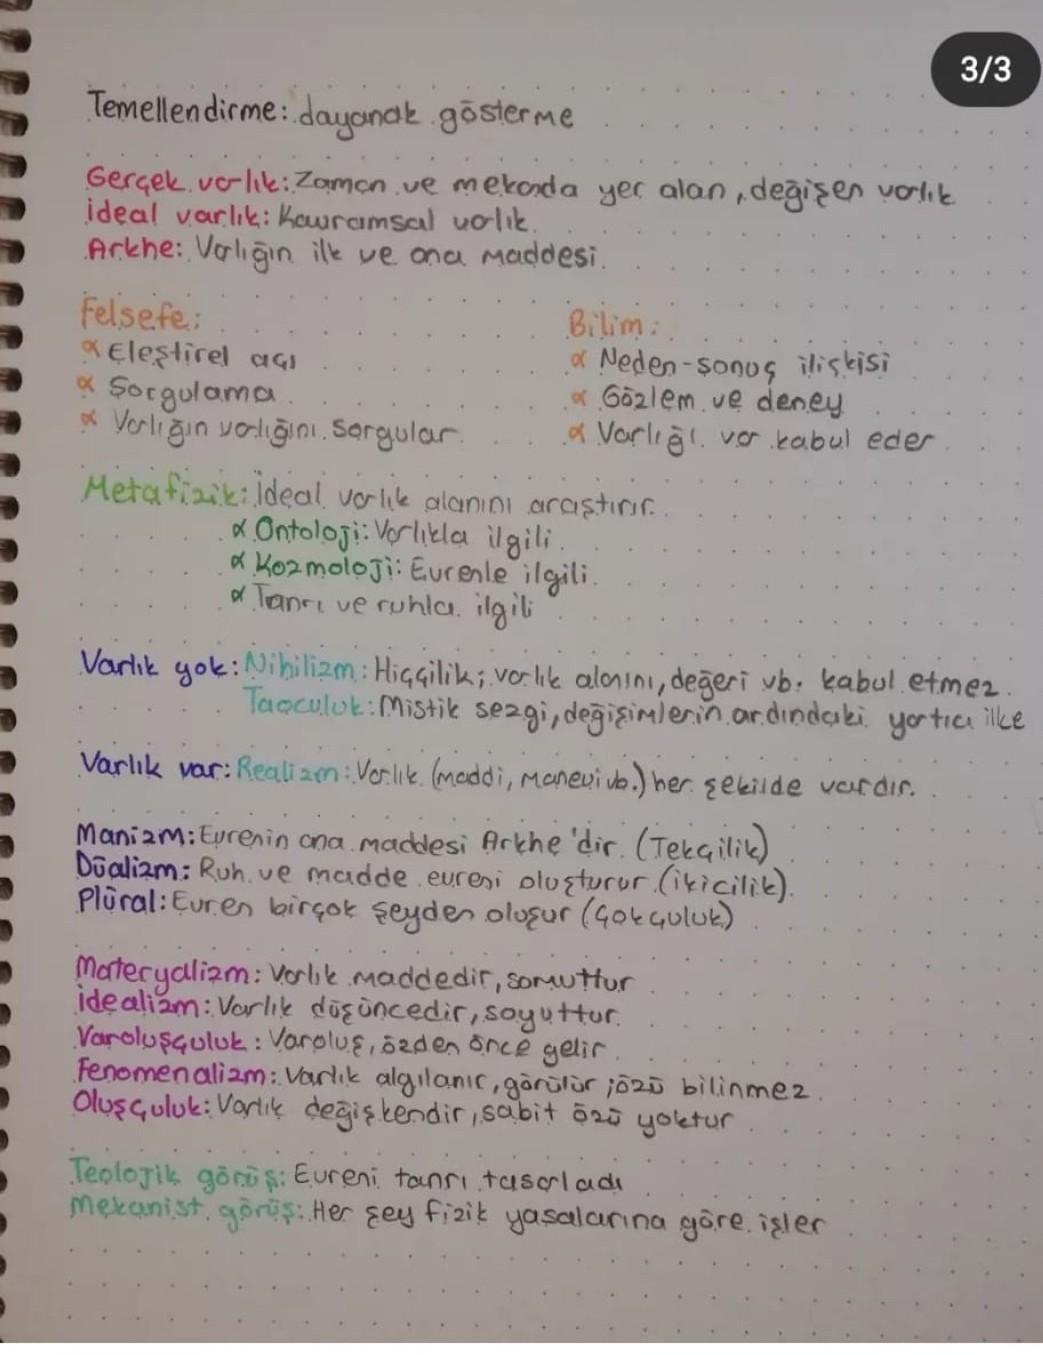 3/3
Temellendirme: dayanak gösterme
Gerçek varlık: Zaman ve mekanda yer alan, değişen varlık
İdeal varlık: Kavramsal varlık.
Arkhe: Varlığın ilk ve ana maddesi.
Felsefe:
α Eleştirel açı
α Sorgulama
α Varlığın varlığını sorgular.
Bilim:
α Neden-sonuç ilişkisi
α Gözlem ve deney
α Varlığı var kabul eder.
Metafizik: İdeal varlık alanını araştırır.
α Ontoloji: Varlıkla ilgili.
α Kozmoloji: Evrenle ilgili.
α Tanrı ve ruhla ilgili
Varlık yok: Nihilizm: Hiççilik; varlık alanını, değeri vb. kabul etmez.
Taoculuk: Mistik sezgi, değişimlerin ardındaki yartıcı ilke
Varlık var: Realizm: Varlık (maddi, manevi vb.) her şekilde vardır.
Manizm: Evrenin ana maddesi Arkhe'dir. (Tekçilik)
Düalizm: Ruh ve madde evreni oluşturur. (ikicilik).
Plüral: Evren birçok şeyden oluşur (Çokçuluk)
Materyalizm: Varlık maddedir, somuttur
İdealizm: Varlık düşüncedir, soyuttur.
Varoluşçuluk: Varoluş, özden önce gelir.
Fenomenalizm: Varlık algılanır, görülür; özü bilinmez.
Oluşçuluk: Varlık değişkendir, sabit özü yoktur.
Teolojik görüş: Evreni tanrı tasarladı
Mekanist görüş: Her şey fizik yasalarına göre işler